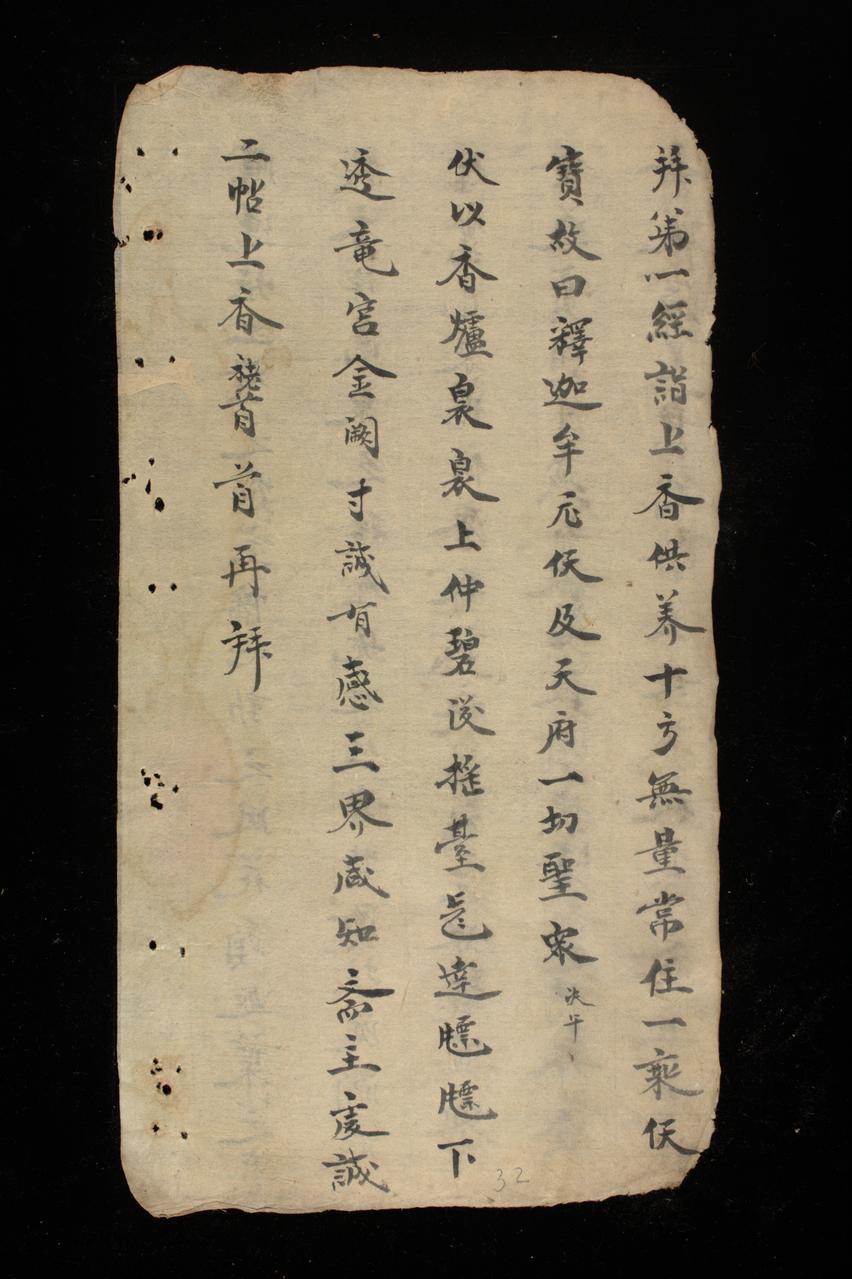 拜第一經詣上香供养十方無量常住一乘仸
寶故曰釋迦牟尼仸及天府一切聖衆
伏以香爐裊裊上仲碧漢摇臺
透竜宫金阙寸誠有感三界咸知斋主虔誠
二帖上香首再拜
32